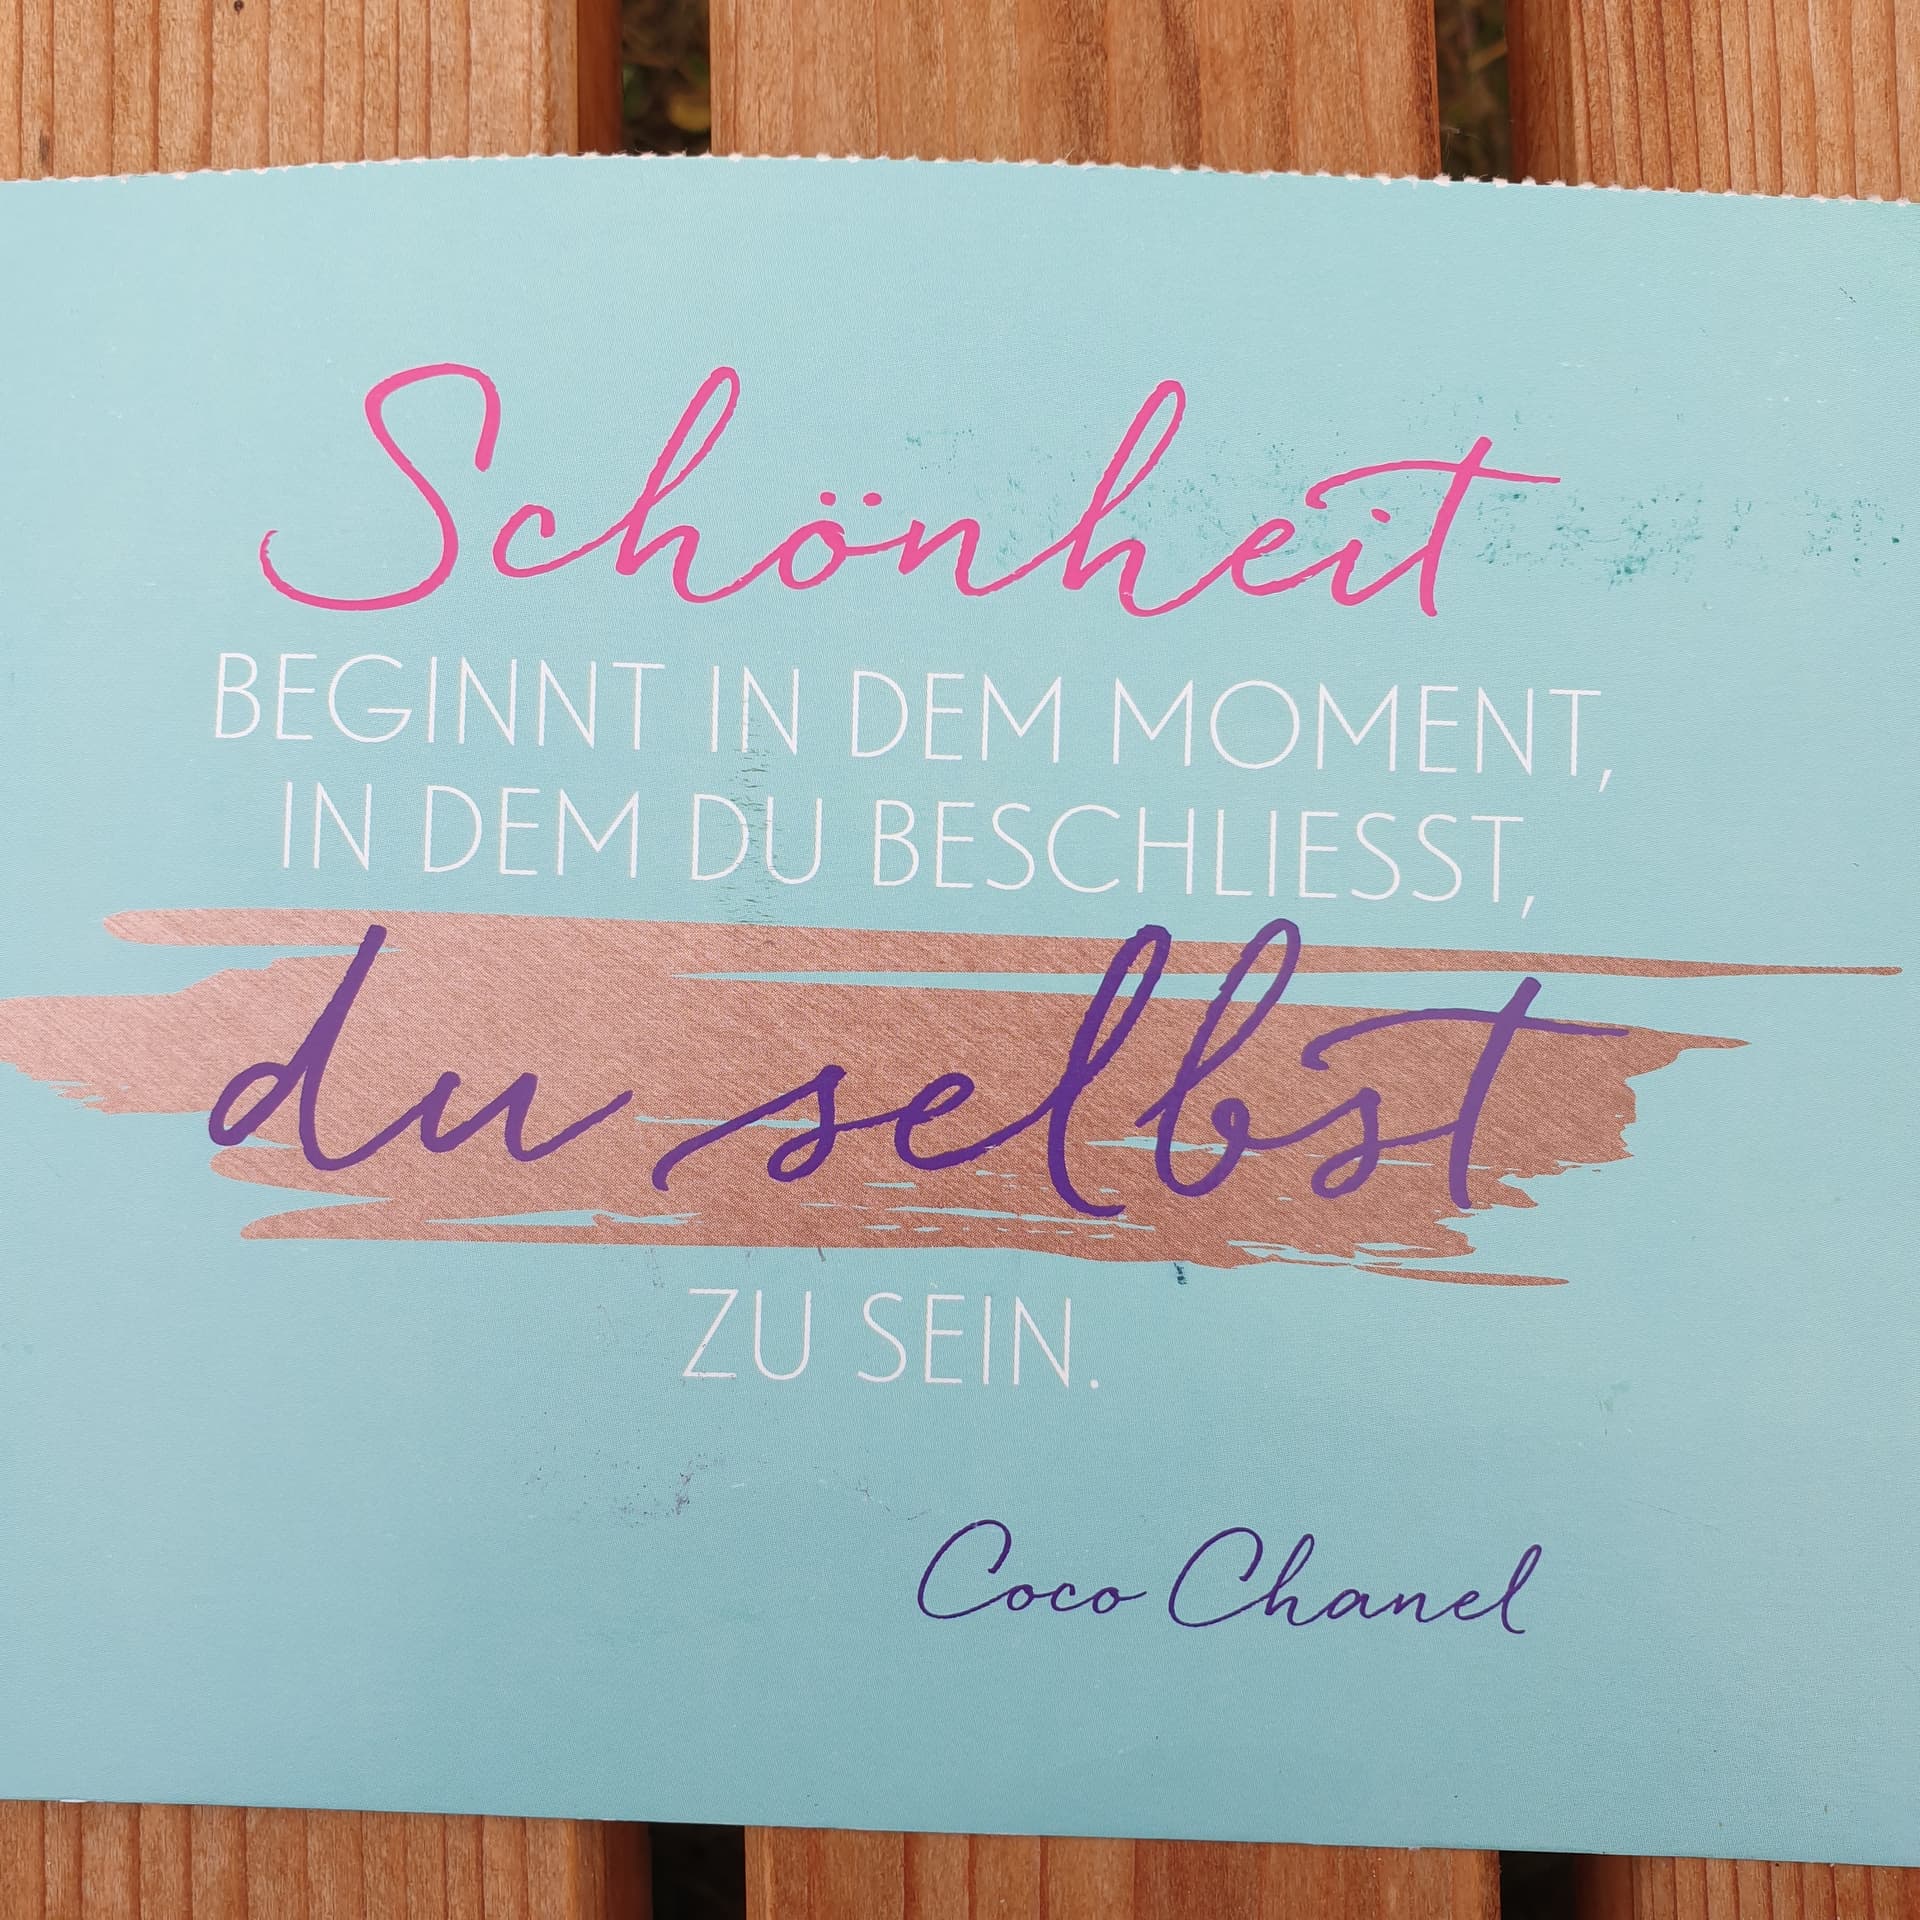 Schönheit
BEGINNT IN DEM MOMENT,
IN DEM DU BESCHLIESST,
du selbst
ZU SEIN.
Coco Chanel